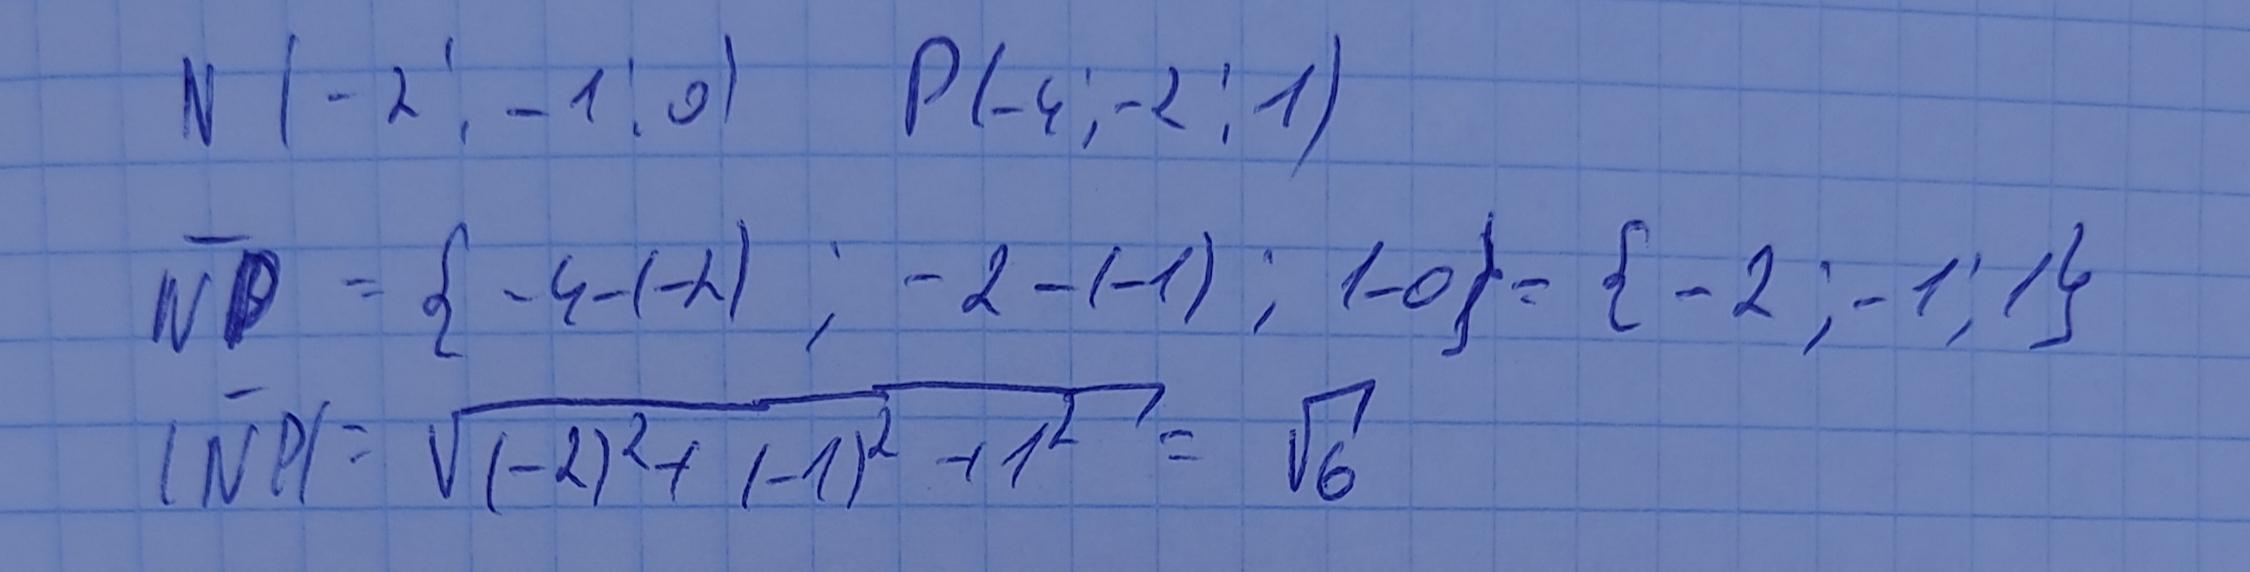 N (-2; -1; 0) P(-4; -2; 1)
N̅P̅ = { -4-(-2) ; -2-(-1) ; 1-0} = { -2 ; -1; 1}
|N̅P̅| = √((-2)² + (-1)² + 1²) = √6